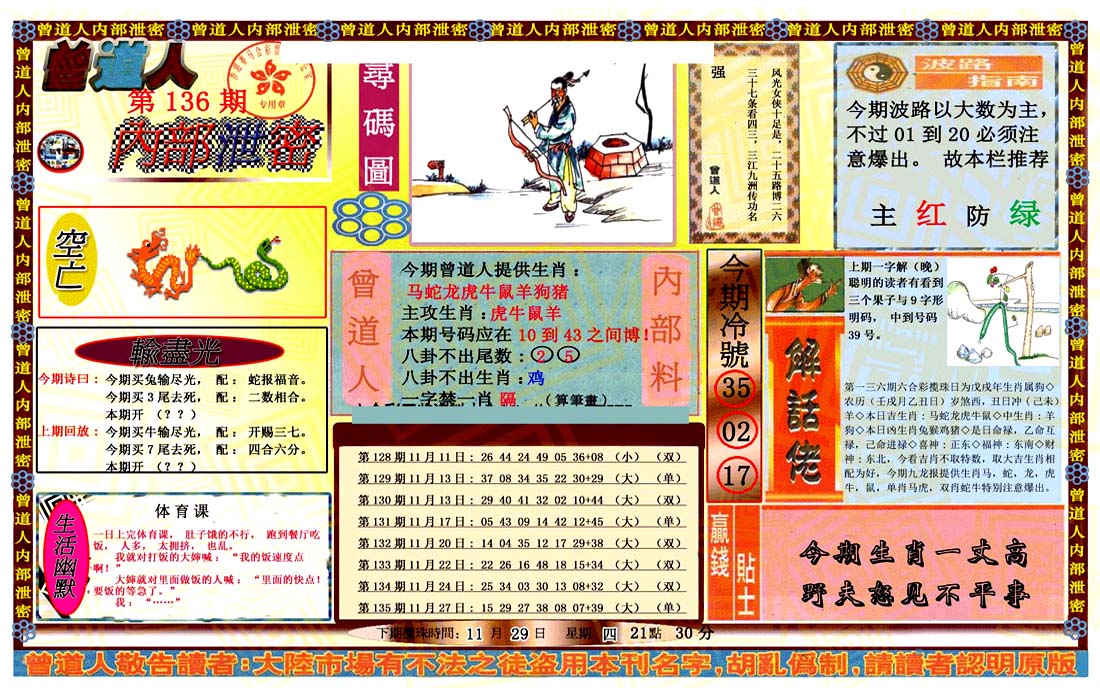 曾道人内部泄密 曾道人内部泄密 曾道人内部泄密 曾道人内部泄密 曾道人内部泄密 曾道人内部泄密 曾道人内部泄密
曾道人内部泄密 曾道人内部泄密 曾道人内部泄密 曾道人内部泄密
曾道人
第 136 期
内部泄密
专用章
尋碼圖
风光女侠十足是，二十五路博二六
三十七条看四三，三江九洲传功名
强
曾道人
波路
指南
今期波路以大数为主，
不过 01 到 20 必须注
意爆出。 故本栏推荐
主 红 防 绿
空亡
輸盡光
今期诗曰： 今期买兔输尽光， 配： 蛇报福音。
今期买 3 尾去死， 配： 二数相合。
本期开 （? ? ）
上期回放： 今期买牛输尽光， 配： 开赐三七。
今期买 7 尾去死， 配： 四合六分。
本期开 （? ? ）
曾道人
內部料
今期曾道人提供生肖：
马蛇龙虎牛鼠羊狗猪
主攻生肖：虎牛鼠羊
本期号码应在 10 到 43 之间博！
八卦不出尾数：2 5
八卦不出生肖：鸡
一字禁一肖 隔 （算筆畫）
今期冷號
35
02
17
上期一字解（晚）
聪明的读者有看到
三个果子与 9 字形
明码， 中到号码
39 号。
解話佬
第一三六期六合彩揽珠日为戊戌年生肖属狗◇
农历（壬戌月乙丑日）岁煞西，丑日冲（己未）
羊◇本日吉生肖：马蛇龙虎牛鼠◇中生肖：羊
狗◇本日凶生肖兔猴鸡猪◇是日命禄，乙命互
禄，己命进禄◇喜神：正东◇福神：东南◇财
神：东北，今看吉肖不取特数，取大吉生肖相
配为好，今期九龙报提供生肖马，蛇，龙，虎
牛，鼠，单肖马虎，双肖蛇牛特别注意爆出。
第 128 期 11 月 11 日：26 44 24 49 05 36+08 （小） （双）
第 129 期 11 月 13 日：37 08 34 35 22 30+29 （大） （单）
第 130 期 11 月 13 日：29 40 41 32 02 10+44 （大） （双）
第 131 期 11 月 17 日：05 43 09 14 42 12+45 （大） （单）
第 132 期 11 月 20 日：14 04 35 12 17 29+38 （大） （双）
第 133 期 11 月 22 日：22 26 16 48 18 15+34 （大） （双）
第 134 期 11 月 24 日：25 34 03 30 13 08+32 （大） （双）
第 135 期 11 月 27 日：15 29 27 38 08 07+39 （大） （单）
生活幽默
体 育 课
一日上完体育课， 肚子饿的不行， 跑到餐厅吃
饭， 人多， 太拥挤， 也乱。
我就对打饭的大婶喊： “我的饭速度点
啊！”
大婶就对里面做饭的人喊： “里面的快点！
要饭的等急了。”
我： “……”
贏錢
貼士
今期生肖一丈高
野夫怒见不平事
下期攪珠時間：11 月 29 日 星期 四 21點 30 分
曾道人敬告讀者：大陸市場有不法之徒盗用本刊名字，胡亂僞制，請讀者認明原版